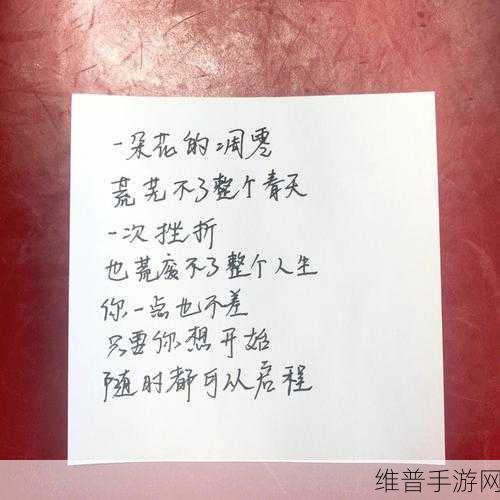 一朵花的凋零
荒芜不了整个春天
一次挫折
也荒废不了整个人生
你一点也不差
只要你想开始
随时都可从启程
维普手游网